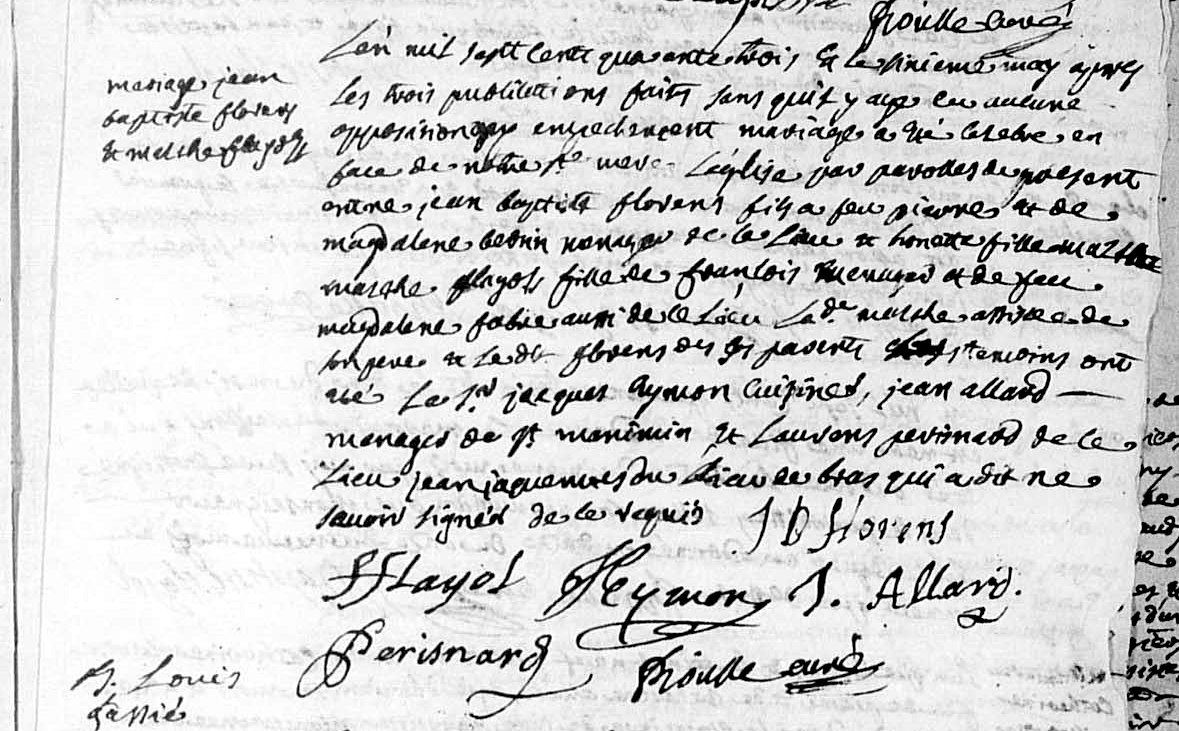 curé
L'an mil sept cent quarante trois & le sixieme may apres
mariage jean
baptiste florens
& marthe flayols
Les trois publications faits sans quil y aye eu aucune
opposition ny empechement mariage a eté celebré en
face de notre ste mere Léglise par parolles de present
entre jean baptiste florens fils a feu pierre et de
magdalene bedrin menager de ce Lieu & honette fille
marthe flayols fille de françois menager et de feu
magdalene fabre aussi de ce Lieu La de marthe assistée de
son pere & Le dt florens des ses parents temoins ont
eté Le sr jacques aymon cuisinier, jean allard
menager de st maximin & Laurens perisnard de ce
Lieu jean jaques du Lieu de bras qui a dit ne
savoir signer de ce requis J B florens
fflayol Aymon J. Allard.
Perisnard curé
B. Louis